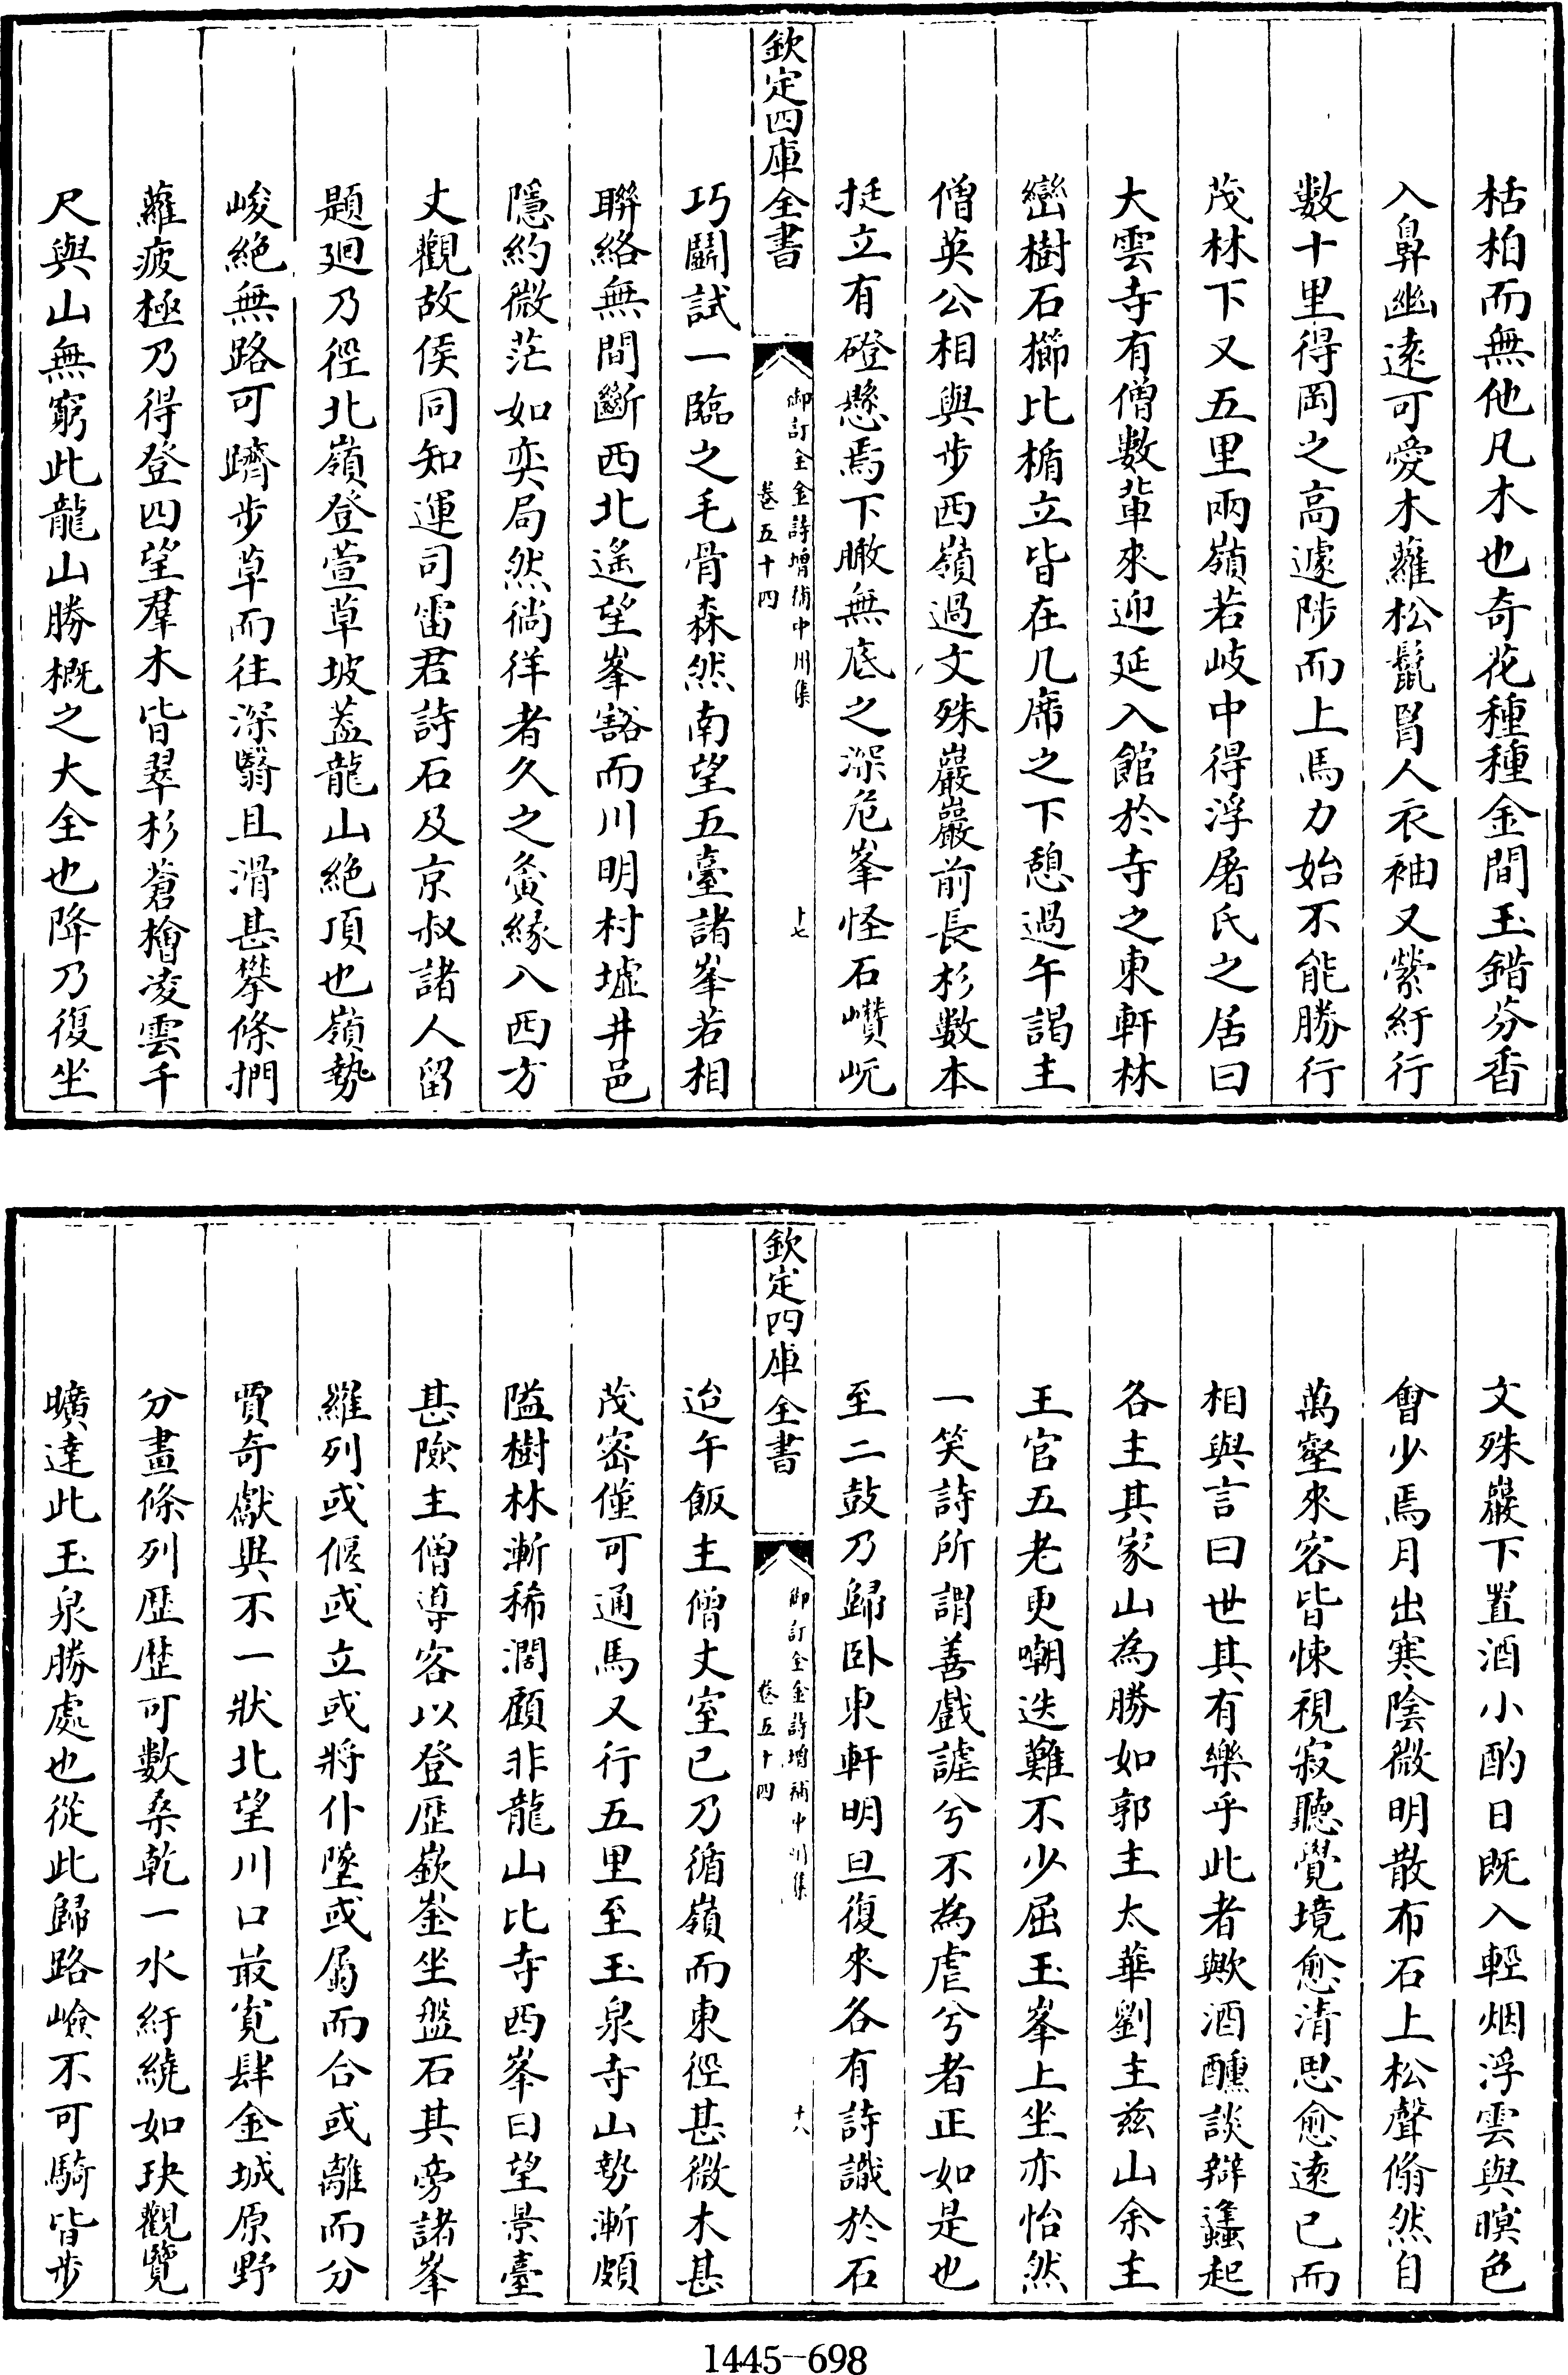 栝柏而無他凡木也奇花種種金間玉錯芬香
入鼻幽逺可愛木蘿松鬛冒人衣袖又縈紆行
數十里得岡之高遽陟而上馬力始不能勝行
茂林下又五里兩嶺若岐中得浮屠氏之居曰
大雲寺有僧數軰來迎延入館於寺之東軒林
巒樹石櫛比楯立皆在几席之下憩過午謁主
僧英公相與步西嶺過文殊巖巖前長杉數本
挺立有磴懸焉下瞰無底之深危峯怪石巑岏
欽定四庫全書
御訂全金詩增補中州集
卷五十四
十七
巧鬭試一臨之毛骨森然南望五臺諸峯若相
聯絡無間斷西北遙望峯豁而川明村墟井邑
隱約微茫如奕局然徜徉者久之夤緣入西方
丈觀故侯同知運司雷君詩石及京叔諸人留
題廻乃徑北嶺登萱草坡葢龍山絶頂也嶺勢
峻絶無路可躋步草而往深翳且滑甚攀條捫
蘿疲極乃得登四望羣木皆翠杉蒼檜凌雲千
尺與山無窮此龍山勝概之大全也降乃復坐
文殊巖下置酒小酌日既入輕烟浮雲與暝色
會少焉月出寒陰微明散布石上松聲翛然自
萬壑來客皆悚視寂聽覺境愈清思愈逺已而
相與言曰世其有樂乎此者歟酒醺談辯蠭起
各主其家山為勝如郭主太華劉主兹山余主
王官五老更嘲迭難不少屈玉峯上坐亦怡然
一笑詩所謂善戲謔兮不為虐兮者正如是也
至二鼓乃歸卧東軒明旦復來各有詩識於石
欽定四庫全書
御訂全金詩增補中州集
卷五十四
十八
迨午飯主僧丈室已乃循嶺而東徑甚微木甚
茂密僅可通馬又行五里至玉泉寺山勢漸頗
隘樹林漸稀濶顧非龍山比寺西峯曰望景臺
甚險主僧導客以登歴嶔崟坐盤石其旁諸峯
羅列或偃或立或將仆墜或屬而合或離而分
賈奇獻異不一狀北望川口最寛肆金城原野
分畫條列歴歴可數桑乾一水紆繞如玦觀覽
曠達此玉泉勝處也從此歸路嶮不可騎皆步
1445—698